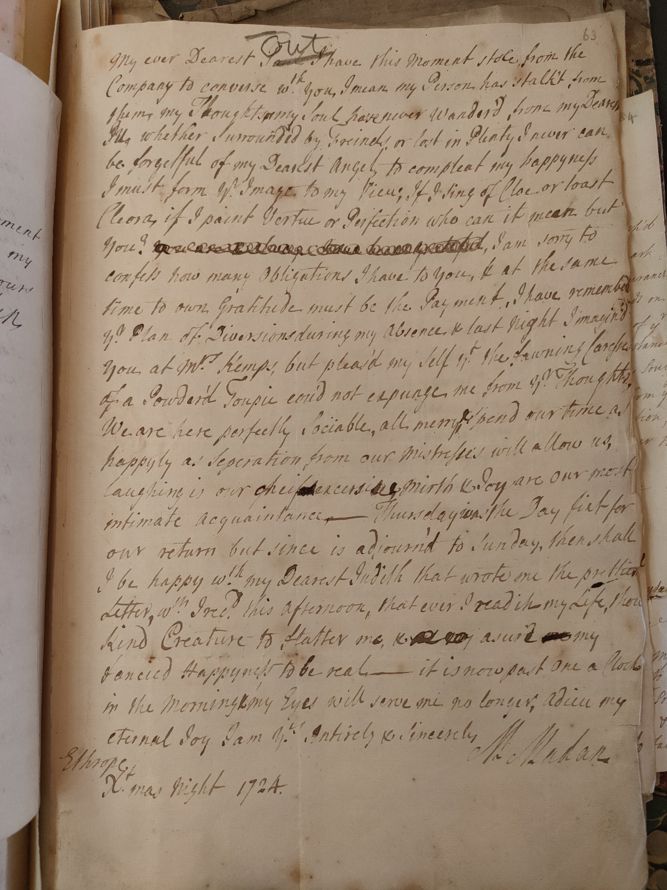 63
out
My ever Dearest I have this Moment stole from the
Company to converse wth You, I mean my Person has stalk't from
them, my Thoughts my Soul have never Wander'd from my Dearest
whether Surrounded by Freinds, or lost in Plenty I never can
be forgetfull of my Dearest Angel, to compleat my happyness
I must form Yr Image to my View, If I sing of Cloe or toast
Cleora, if I paint Vertue or Perfection who can it mean but
You? I am sorry to
confess how many Obligations I have to You, & at the same
time to own Gratitude must be the Payment, I have remember'd
Yr Plan of Diversions during my absence & last Night I imagin'd
You at Mrs Kemps, but pleas'd my self yt the fawning Carcase
of a Powder'd Toupie could not expunge me from Yr Thoughts,
We are here perfectly Sociable, all merry & spend our time as
happyly as Seperation from our Mistresses will allow us,
laughing is our cheif excersise, Mirth & Joy are our most
intimate acquaintance, — Thursday was the Day fixt for
our return but since is adjourn'd to Sunday, then shall
I be happy wth my Dearest Judith that wrote me the prettiest
Letter, wch I recd this afternoon, that ever I read in my Life, thou
Kind Creature to flatter me, & asur'd my
fancied Happyness to be real — it is now past One a Clock
in the Morning & my Eyes will serve me no longer, adieu my
eternal Joy I am Yrs Intirely & Sincerely
M Madan
Ethrope
Xt mas Night 1724.